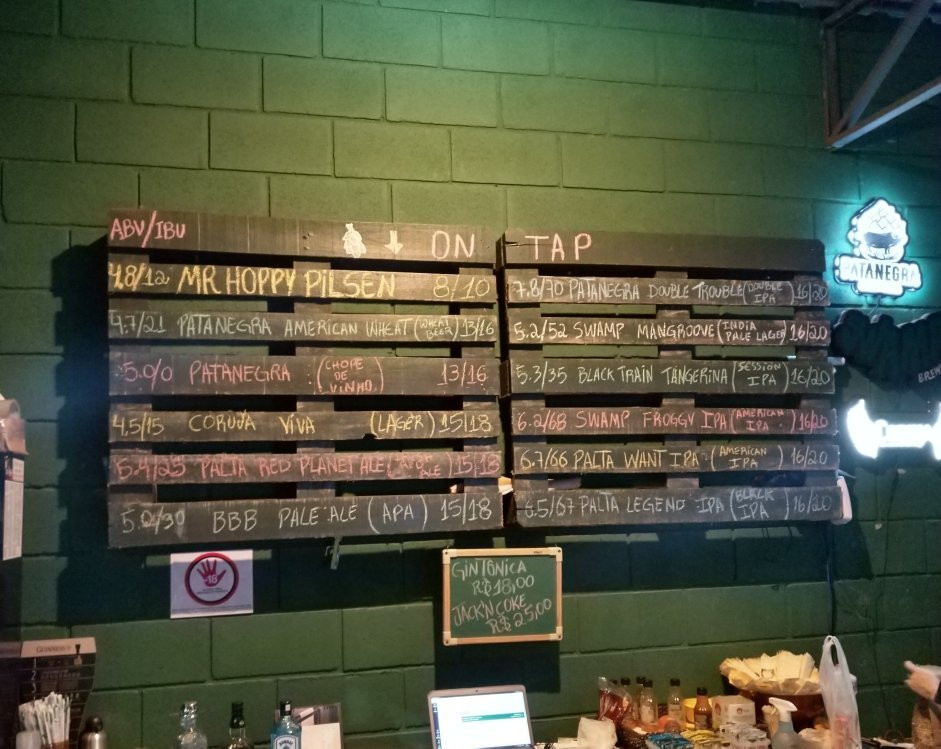 ABV/IBU ON TAP
4.8/12 MR HOPPY PILSEN 8/10
4.7/21 PATANEGRA AMERICAN WHEAT (WHEAT BEER) 13/16
5.0/0 PATANEGRA (CHOPE DE VINHO) 13/16
4.5/15 CORUJA VIVA (LAGER) 15/18
5.4/25 PALTA RED PLANET ALE ALE) 15/18
5.0/30 BBB PALE ALE (APA) 15/18
7.8/70 PATANEGRA DOUBLE TROUBLE (DOUBLE IPA) 16/20
5.2/52 SWAMP MANGROOVE (INDIA PALE LAGER) 16/20
5.3/35 BLACK TRAIN TANGERINA (SESSION IPA) 16/20
6.2/68 SWAMP FROGGY IPA (AMERICAN IPA) 16/20
6.7/66 PALTA WANT IPA (AMERICAN IPA) 16/20
6.5/67 PALTA LEGEND IPA (BLACK IPA) 16/20
PATANEGRA
-18
GIN TÔNICA
R$18,00
JACK'N COKE
R$25,00
GUINNESS